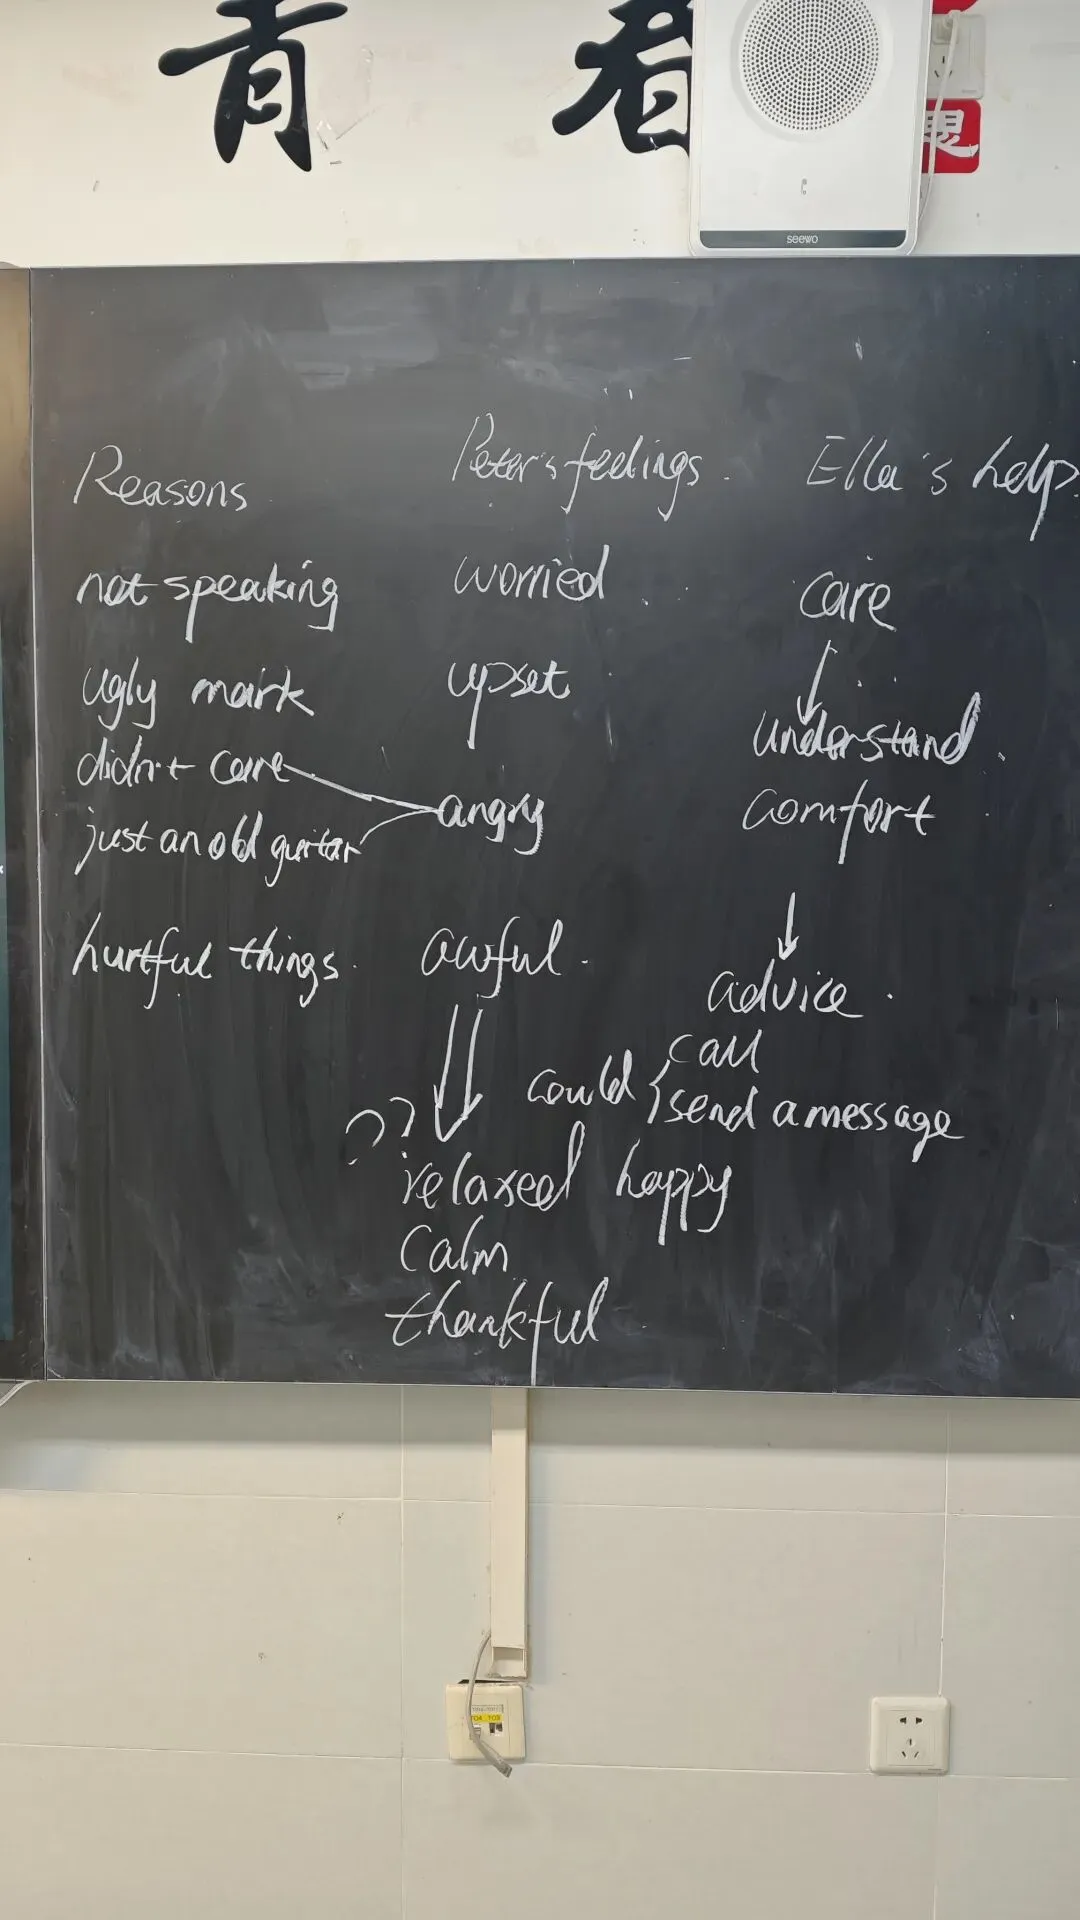 青春
seewo
Reasons
Peter's feelings.
Ella's help.
not speaking
worried
care
ugly mark
upset
understand
didn't care
angry
comfort
just an old guitar
hurtful things.
awful.
advice.
could { call
send a message
??
relaxed happy
calm
thankful